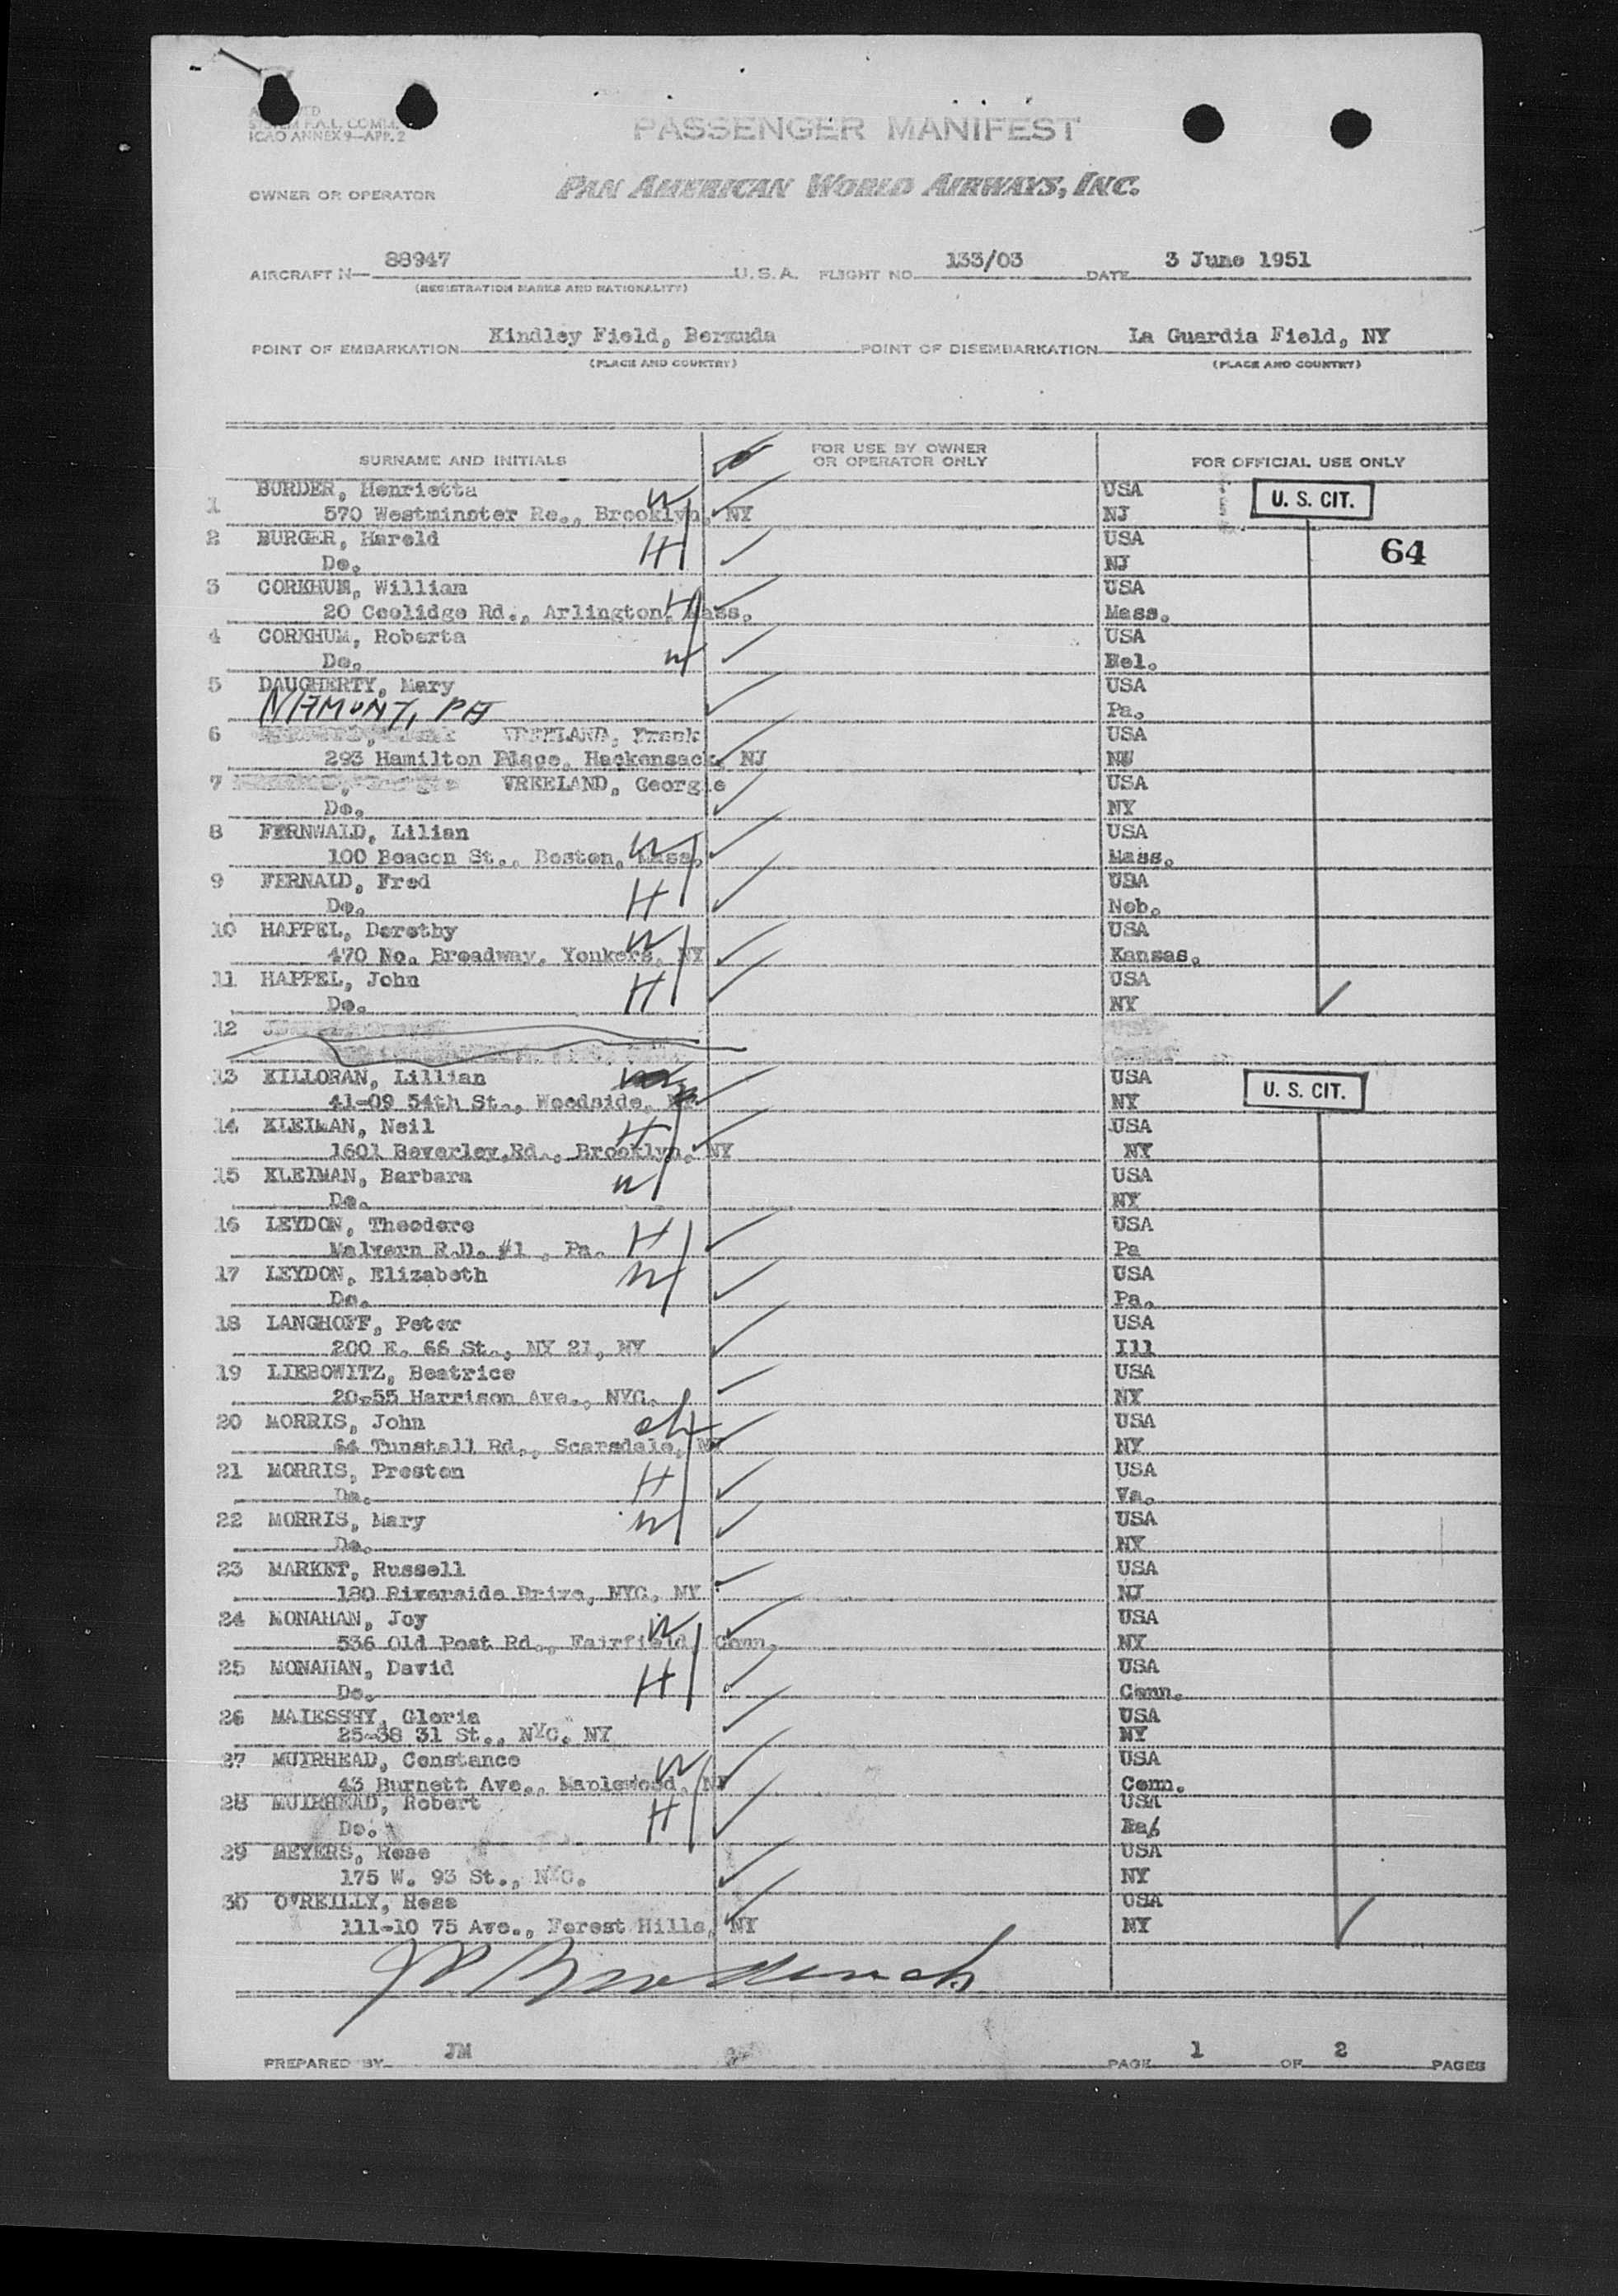 ICAO ANNEX 9—APP. 2
PASSENGER MANIFEST
OWNER OR OPERATOR PAN AMERICAN WORLD AIRWAYS, INC.
AIRCRAFT N— 88947 U.S.A. FLIGHT NO. 133/03 DATE 3 June 1951
(REGISTRATION MARKS AND NATIONALITY)
POINT OF EMBARKATION Kindley Field, Bermuda POINT OF DISEMBARKATION La Guardia Field, NY
(PLACE AND COUNTRY) (PLACE AND COUNTRY)
SURNAME AND INITIALS FOR USE BY OWNER OR OPERATOR ONLY FOR OFFICIAL USE ONLY
1 BURDER, Henrietta W USA U. S. CIT.
570 Westminster Re., Brooklyn, NY NJ
2 BURGER, Harold H USA 64
Do. NJ
3 CORKHUM, William H USA
20 Coolidge Rd., Arlington, Mass. Mass.
4 CORKHUM, Roberta W USA
Do. Hol.
5 DAUGHERTY, Mary USA
PA Pa.
6 VREELAND, Frank USA
293 Hamilton Place, Hackensack, NJ
7 VREELAND, Georgie USA
Do. NY
8 FERNWALD, Lilian W USA
100 Beacon St., Boston, Mass. Mass.
9 FERNALD, Fred H USA
Do. Neb.
10 HAPPEL, Dorothy W USA
470 No. Broadway, Yonkers, NY Kansas.
11 HAPPEL, John H USA
Do. NY
12
13 KILLORAN, Lillian USA U. S. CIT.
41-09 54th St., Woodside, NY NY
14 KLEIMAN, Neil H USA
1601 Beverley Rd., Brooklyn, NY NY
15 KLEIMAN, Barbara W USA
Do. NY
16 LEYDON, Theodore H USA
Malvern R.D. #1 , Pa. Pa
17 LEYDON, Elizabeth W USA
Do. Pa.
18 LANGHOFF, Peter USA
200 E. 66 St., NY 21, NY Ill
19 LIEBOWITZ, Beatrice USA
20-55 Harrison Ave., NYC. NY
20 MORRIS, John ch USA
64 Tunstall Rd., Scarsdale, NY NY
21 MORRIS, Preston H USA
Do. Va.
22 MORRIS, Mary W USA
Do. NY
23 MARKET, Russell USA
180 Riverside Drive, NYC, NY NJ
24 MONAHAN, Joy W USA
536 Old Post Rd., Fairfield, Conn. NY
25 MONAHAN, David H USA
Do. Conn.
26 MAIESSHY, Gloria USA
25-38 31 St., NYC, NY NY
27 MUIRHEAD, Constance W USA
43 Burnett Ave., Maplewood, NJ Conn.
28 MUIRHEAD, Robert H USA
Do.
29 MEYERS, Rose USA
175 W. 93 St., NYC. NY
30 O'REILLY, Rose USA
111-10 75 Ave., Forest Hills, NY NY
PREPARED BY JM PAGE 1 OF 2 PAGES